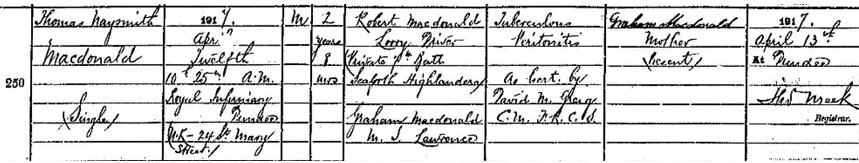 250
Thomas Naysmith
Macdonald
(Single)
1917,
April
Twelfth
10h 25m A.M.
Royal Infirmary
Dundee
U.R. - 24 St Mary
Street)
M
2
years
8
mos
Robert Macdonald
Lorry Driver
Private 7th Batt
Seaforth Highlanders
Graham Macdonald
M. S. Lawrence
Tuberculous
Peritonitis
As cert. by
David M. Greig
C.M. F.R.C.S.
Graham Macdonald
Mother
(Present)
1917,
April 13th
At Dundee
Meek
Registrar.